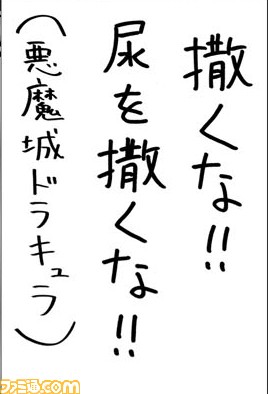 撒くな!!
尿を撒くな!!
(悪魔城ドラキュラ)
ファミ通.com